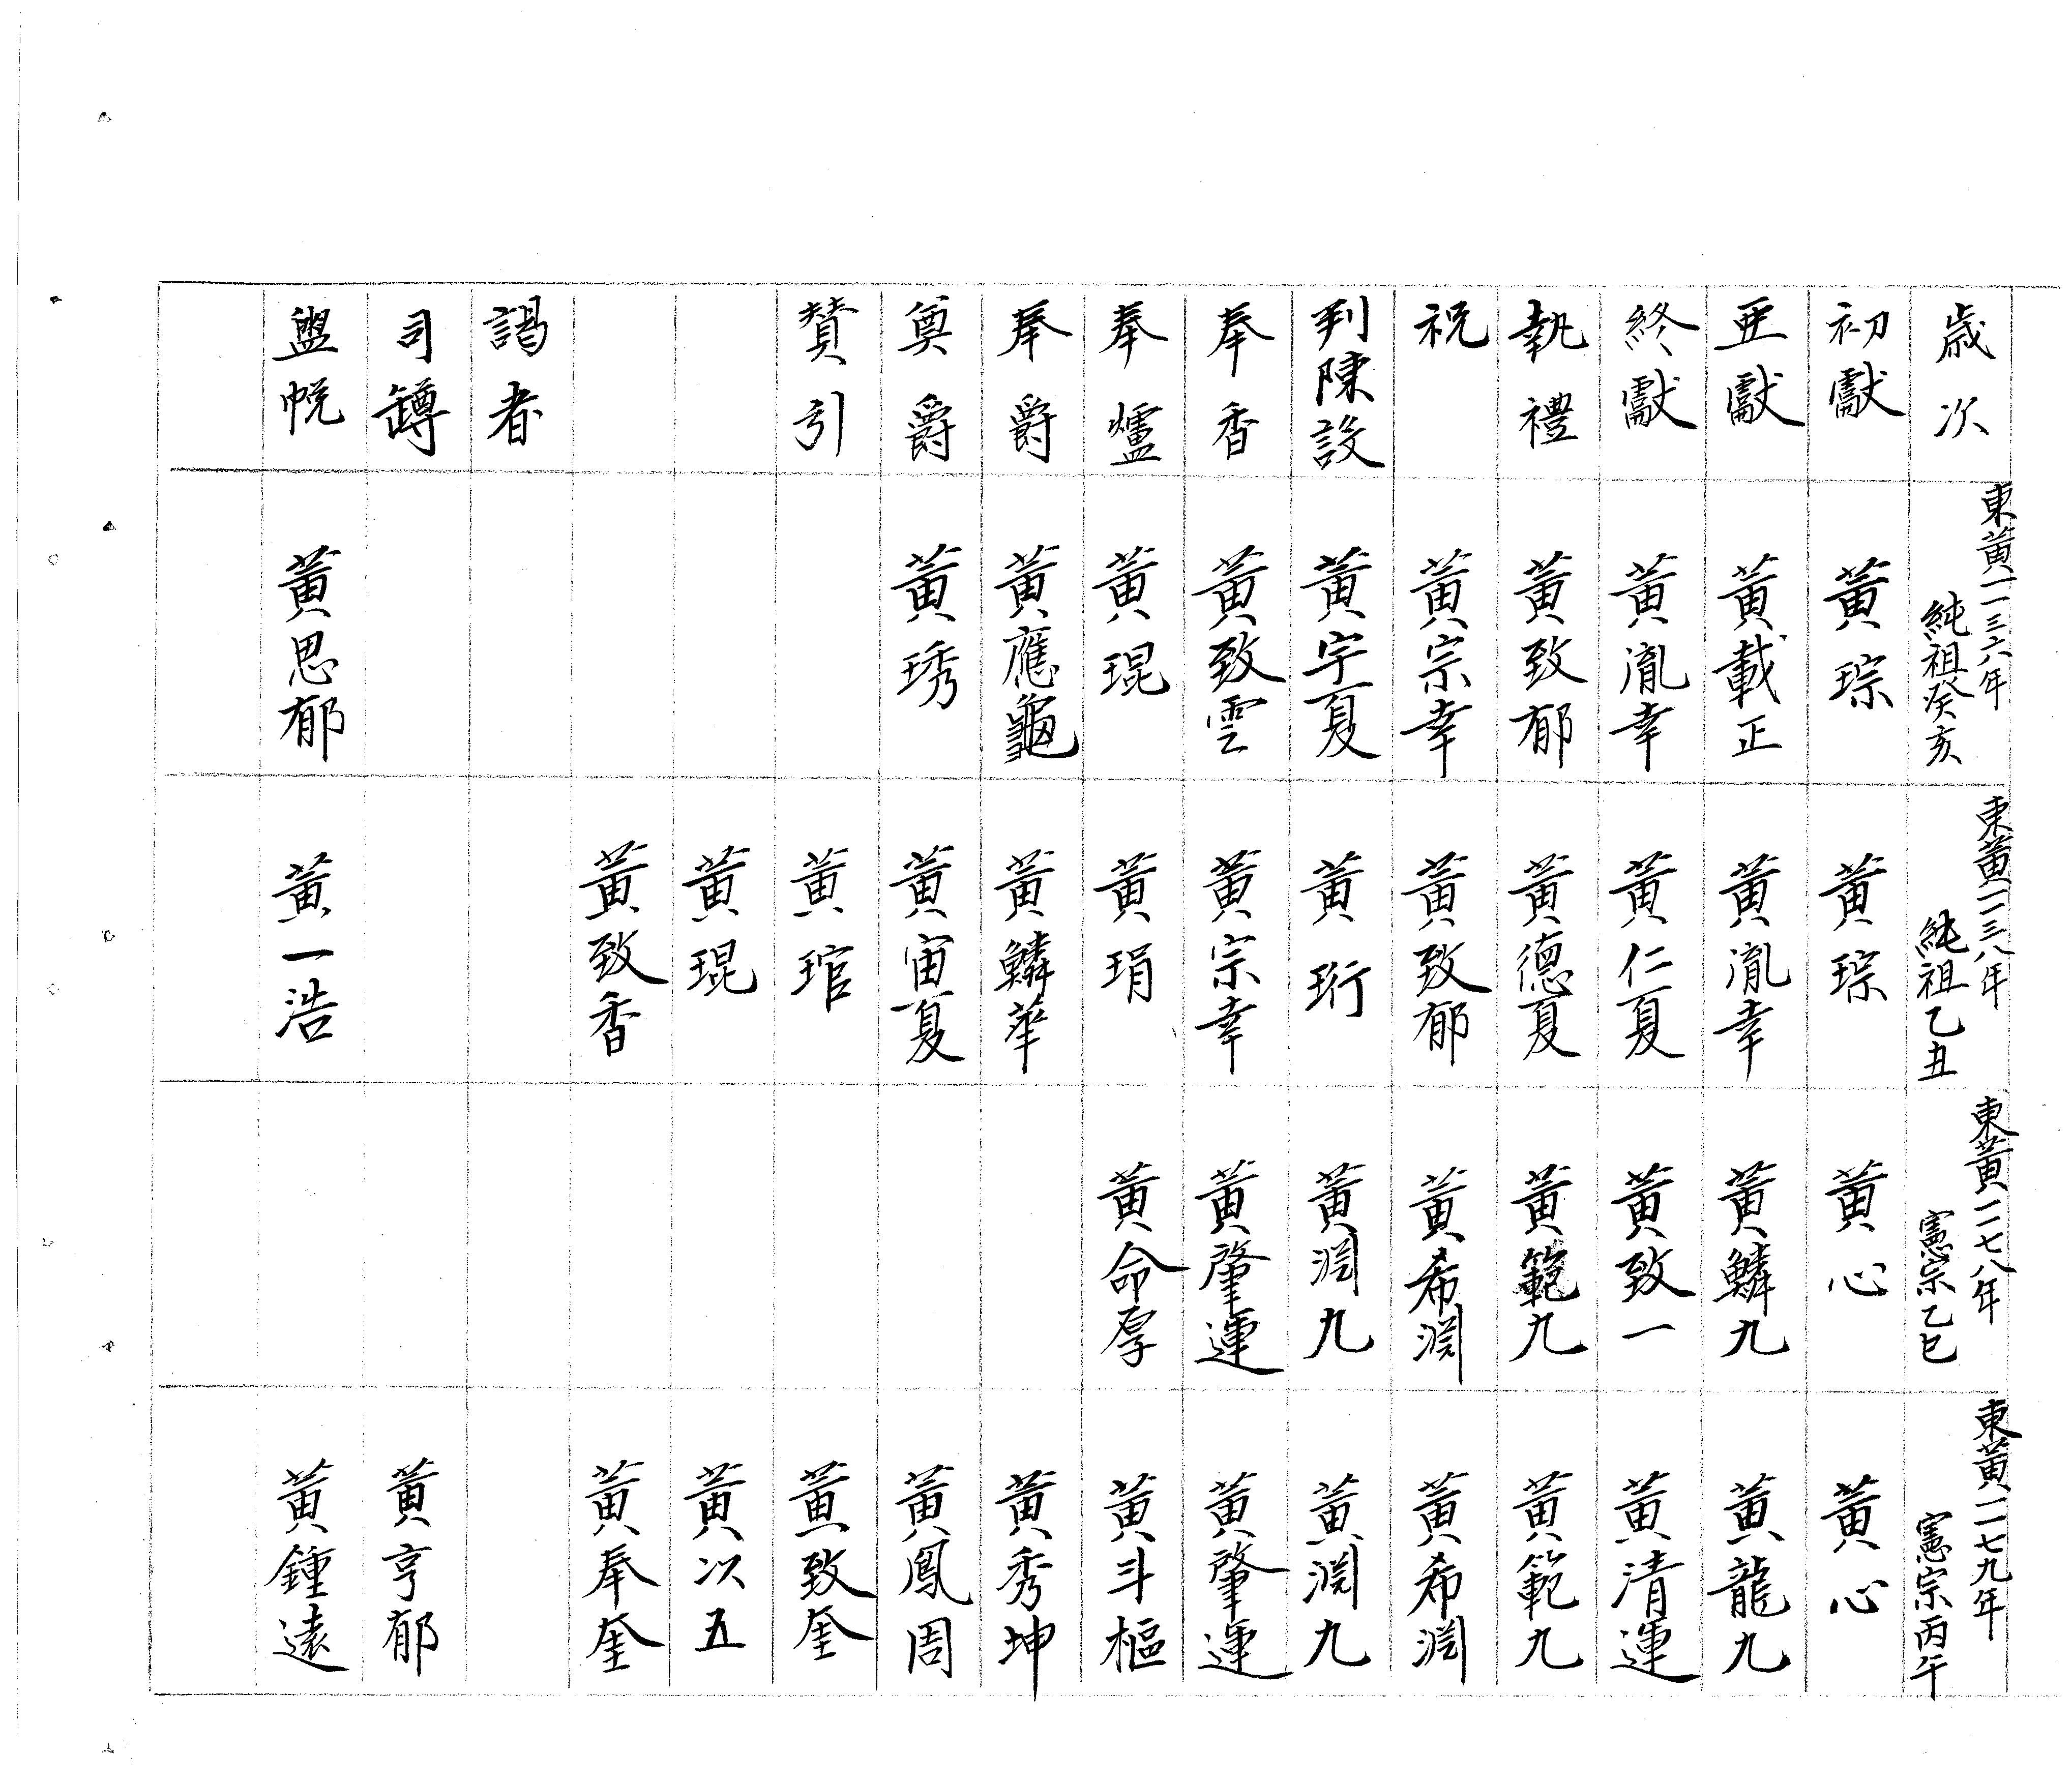 歲次
東黃一一三六年
純祖癸亥
東黃一一三八年
純祖乙丑
東黃一一七八年
憲宗乙巳
東黃一一七九年
憲宗丙午
初獻
黃琮
黃琮
黃心
黃心
亞獻
黃載正
黃胤幸
黃鱗九
黃龍九
終獻
黃胤幸
黃仁夏
黃致一
黃清運
執禮
黃致郁
黃德夏
黃範九
黃範九
祝
黃宗幸
黃致郁
黃希淵
黃希淵
判陳設
黃宇夏
黃珩
黃淵九
黃淵九
奉香
黃致雲
黃宗幸
黃肇運
黃肇運
奉爐
黃琨
黃琄
黃命厚
黃斗樞
奉爵
黃應龜
黃鱗華
黃秀坤
奠爵
黃琇
黃宙夏
黃鳳周
贊引
黃琯
黃致奎
黃琨
黃次五
黃致香
黃奉奎
謁者
司罇
黃亨郁
盥帨
黃思郁
黃一浩
黃鍾遠